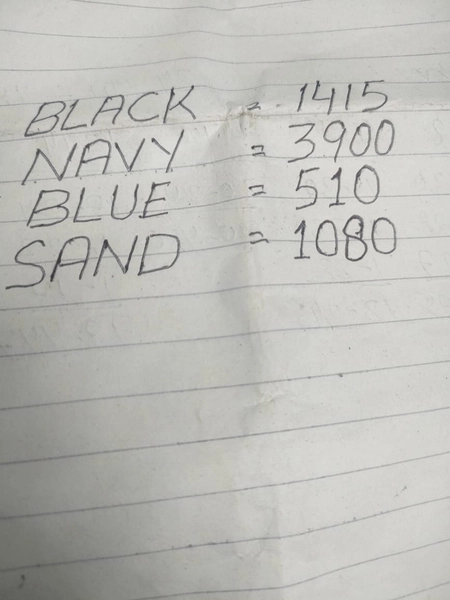 BLACK = 1415
NAVY = 3900
BLUE = 510
SAND = 1080